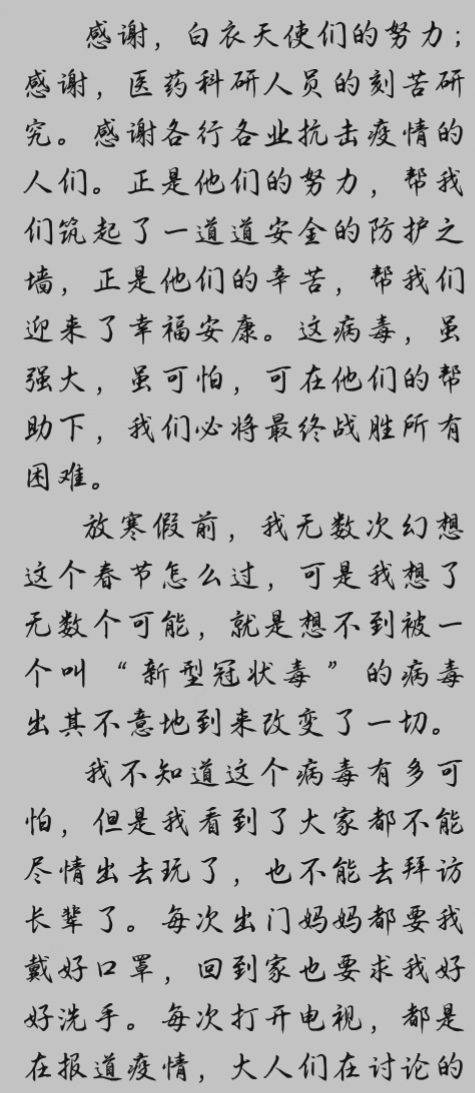 感谢，白衣天使们的努力；
感谢，医药科研人员的刻苦研
究。感谢各行各业抗击疫情的
人们。正是他们的努力，帮我
们筑起了一道道安全的防护之
墙，正是他们的辛苦，帮我们
迎来了幸福安康。这病毒，虽
强大，虽可怕，可在他们的帮
助下，我们必将最终战胜所有
困难。
放寒假前，我无数次幻想
这个春节怎么过，可是我想了
无数个可能，就是想不到被一
个叫“新型冠状毒”的病毒
出其不意地到来改变了一切。
我不知道这个病毒有多可
怕，但是我看到了大家都不能
尽情出去玩了，也不能去拜访
长辈了。每次出门妈妈都要我
戴好口罩，回到家也要求我好
好洗手。每次打开电视，都是
在报道疫情，大人们在讨论的